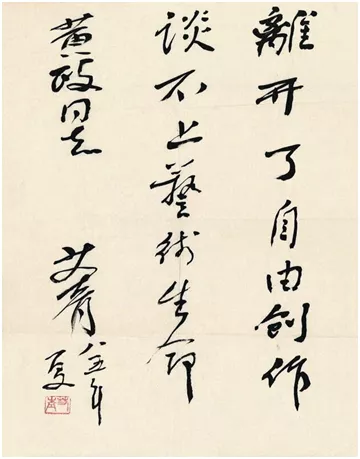 離开了自由創作
談不上藝術生命
黄政同志
艾青
八五年
夏